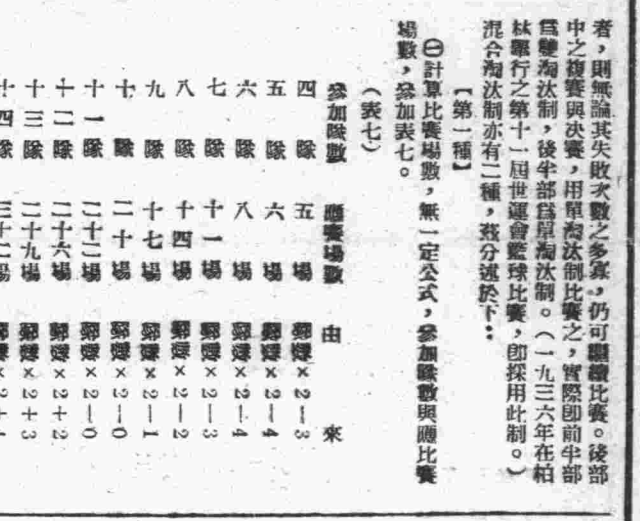 者，則無論其失敗次數之多寡，仍可繼續比賽。後部
中之複賽與決賽，用單淘汰制比賽之，實際卽前半部
爲雙淘汰制，後半部爲單淘汰制。（一九三六年在柏
林舉行之第十一屆世運會籃球比賽，卽採用此制。）
混合淘汰制亦有二種，茲分述於下：
【第一種】
㊀計算比賽場數，無一定公式，參加隊數與應比賽
場數，參加表七。
（表七）
參加隊數 應賽場數 由來
四隊 五場 隊數×2—3
五隊 六場 隊數×2—4
六隊 八場 隊數×2—4
七隊 十一場 隊數×2—3
八隊 十四場 隊數×2—2
九隊 十七場 隊數×2—1
十隊 二十場 隊數×2—0
十一隊 二十二場 隊數×2—0
十二隊 二十六場 隊數×2+2
十三隊 二十九場 隊數×2+3
十四隊 三十二場